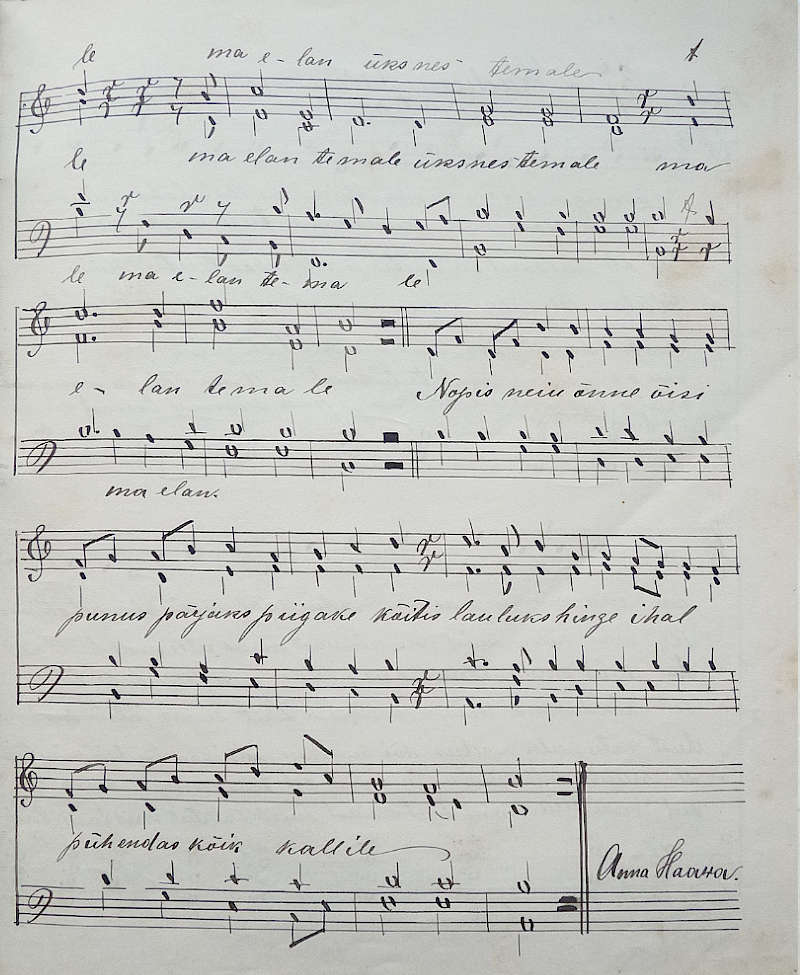 le ma e-lan üksnes temale
le ma elan temale üksnes temale ma
le ma e-lan te-ma le
e- lan te ma le Nopis neiu õnne õisi
ma elan.
punus pärjaks piigake köitis lauluks hinge ihal
pühendas kõik kallile
Anna Haava.